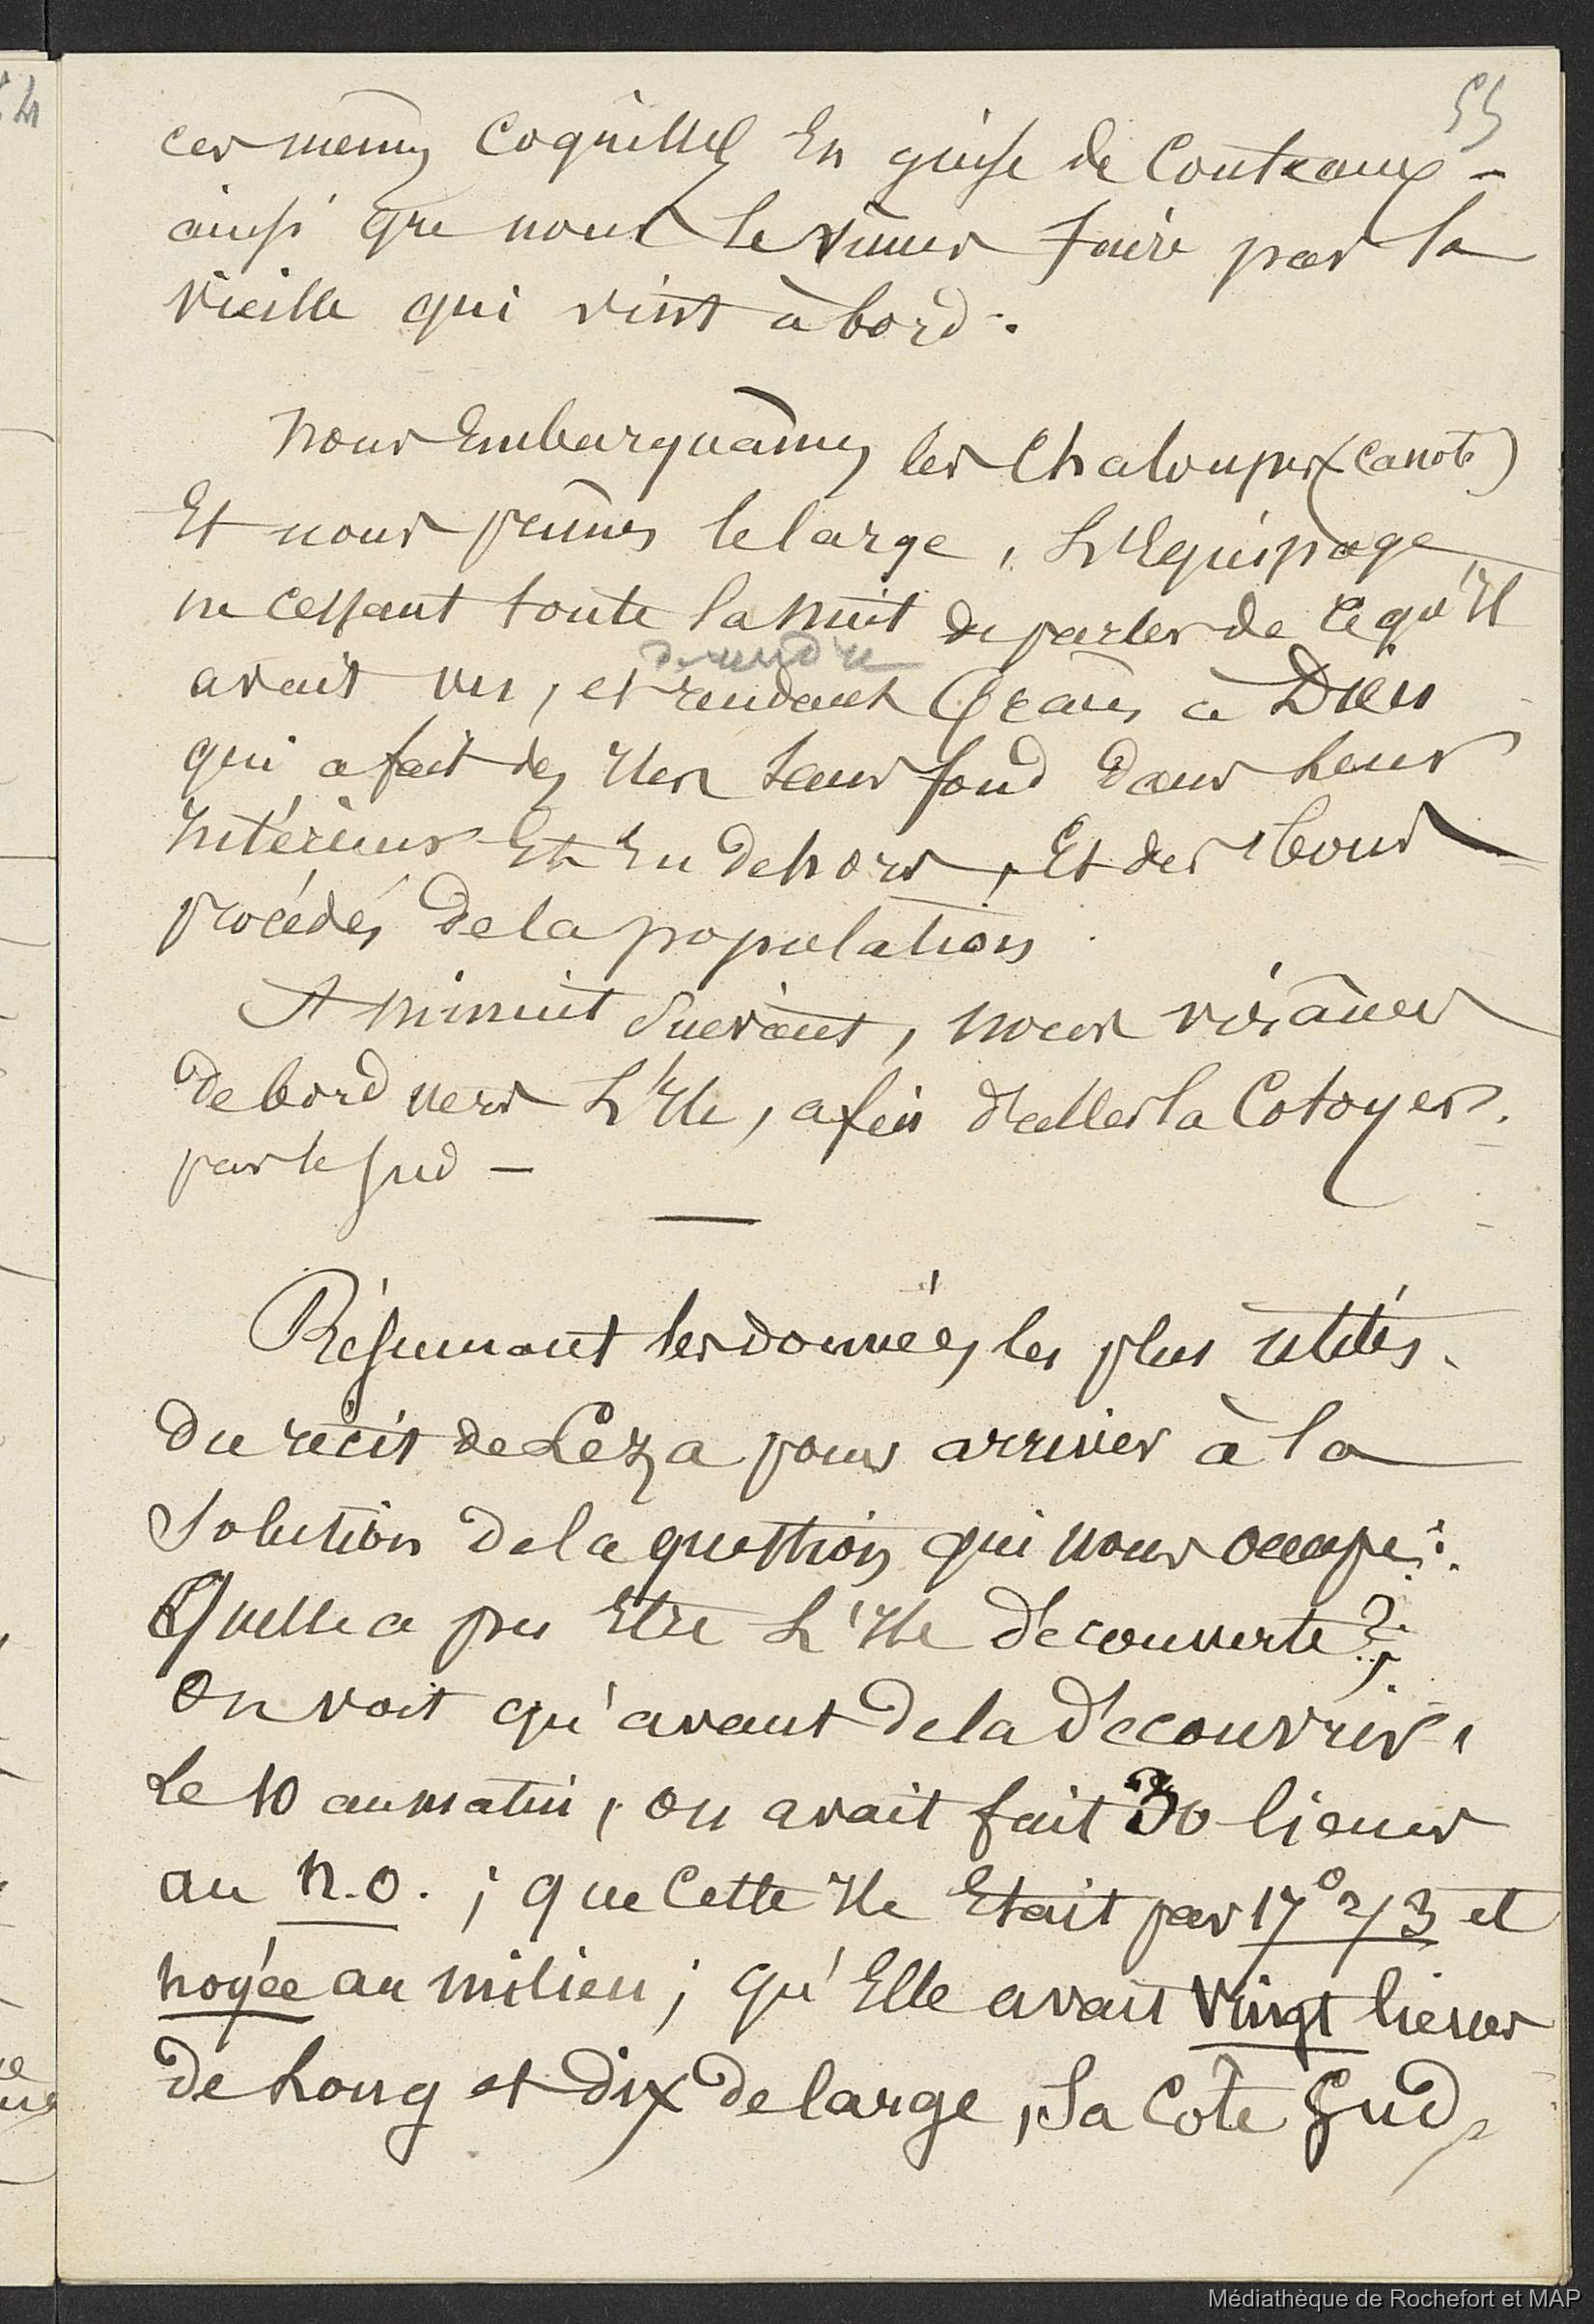 55
ces mêmes Coquilles En guise de Couteaux –
ainsi que nous le vîmes faire par la
vieille qui vint à bord.
Nous Embarquâmes les Chaloupes (canots)
Et nous prîmes le large, L'Equipage
ne cessant toute la Nuit de parler de ce qu'Il
de rendre
avait vu, et rendant Grâces à Dieu
qui a fait des Iles sans fond dans Leur
Intérieur Et En dehors, Et des bons
procédés de la population.
A Minuit Suivant, nous virâmes
de bord vers L'Ile, afin d'aller la Cotoyer.
par le Sud –
Résumant les données les plus utiles.
du récit de Leza pour arriver à la
Solution de la question qui nous occupe :
Quelle a pu Etre L'Ile découverte ?,
On voit qu'avant de la découvrir,
Le 10 au matin, on avait fait 30 lieues
au N.O. ; que Cette Ile Etait par 17° 2/3 et
noyée au milieu ; qu'Elle avait Vingt lieues
de Long et dix de large, Sa Cote Sud,
Médiathèque de Rochefort et MAP